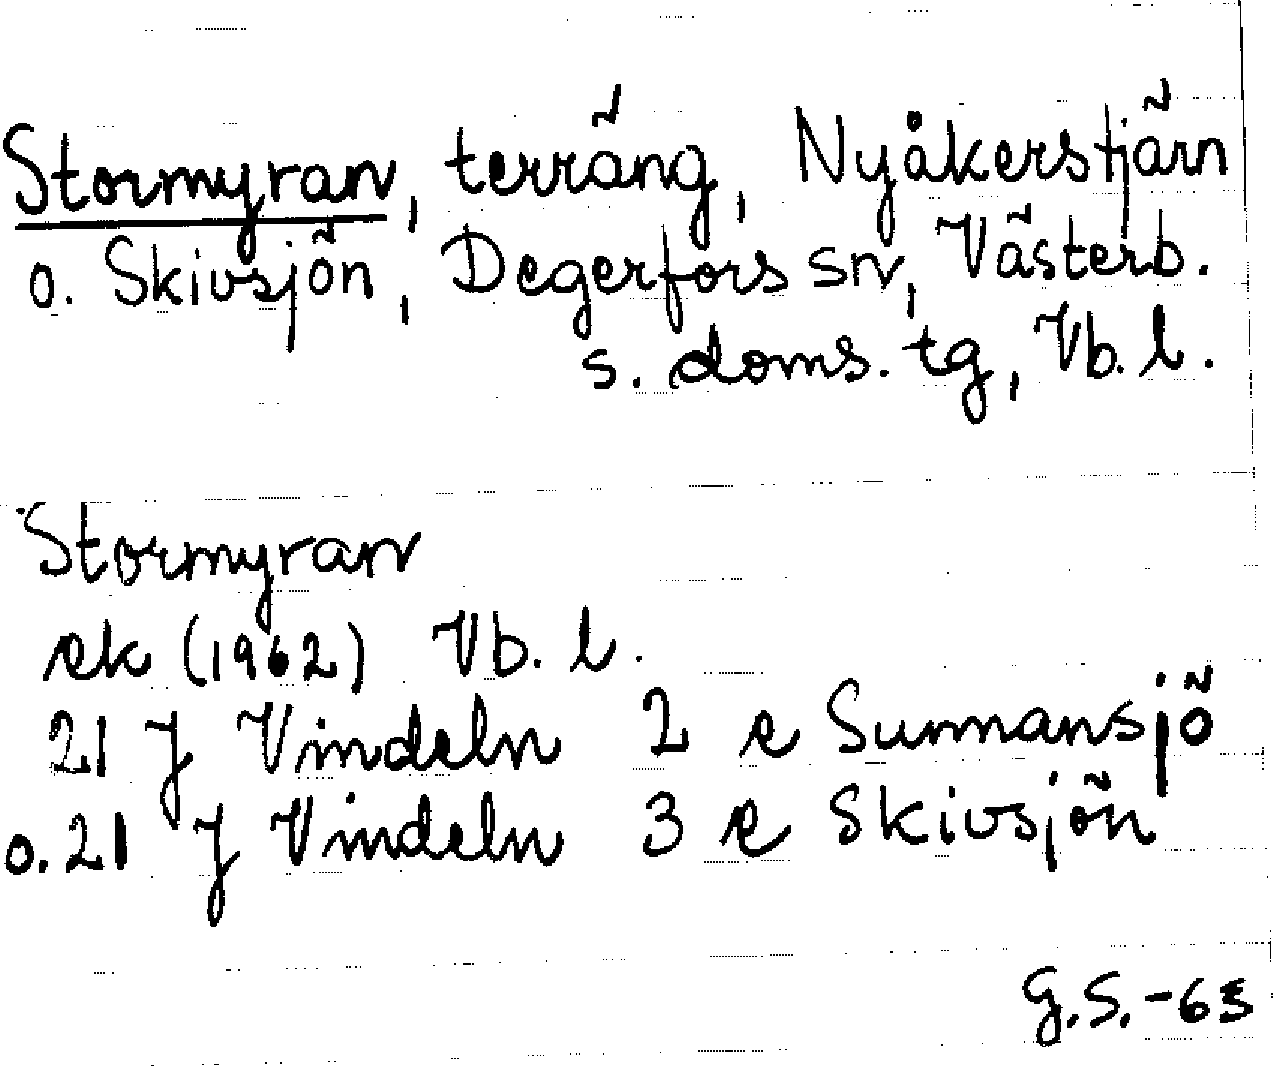 Stormyran, terräng, Nyåkerstjärn
o. Skivsjön, Degerfors sn, Västerb.
s. doms. tg, Vb. l.
Stormyran
ek (1962) Vb. l.
21 J Vindeln 2 e Sunnansjö
o. 21 J Vindeln 3 e Skivsjön
G.S.-63